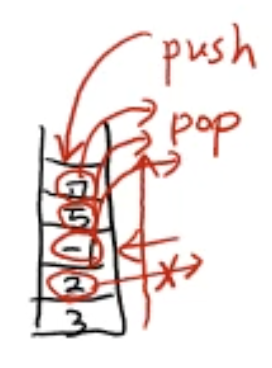 push
pop
7
5
-1
2
3